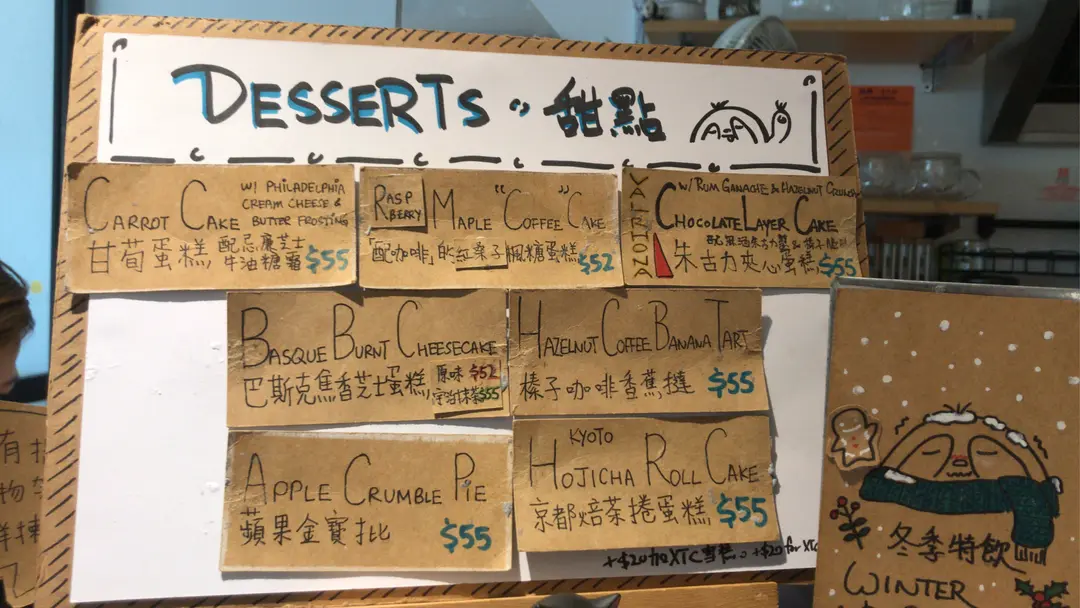 DESSERTS 甜點
CARROT CAKE
W/ PHILADELPHIA
CREAM CHEESE &
BUTTER FROSTING
甘荀蛋糕
配忌廉芝士
牛油糖霜
$55
RASP
BERRY
MAPLE "COFFEE" CAKE
「配咖啡」的紅桑子楓糖蛋糕
$52
VALRHONA
W/ RUM GANACHE & HAZELNUT
CHOCOLATE LAYER CAKE
朱古力夾心蛋糕
$55
BASQUE BURNT CHEESECAKE
巴斯克焦香芝士蛋糕
原味 $52
宇治抹茶 $55
HAZELNUT COFFEE BANANA TART
榛子咖啡香蕉撻 $55
APPLE CRUMBLE PIE
蘋果金寶批
$55
KYOTO
HOJICHA ROLL CAKE
京都焙茶捲蛋糕 $55
+$20加XTC雪糕。+$20 for XTC
冬季特飲
WINTER